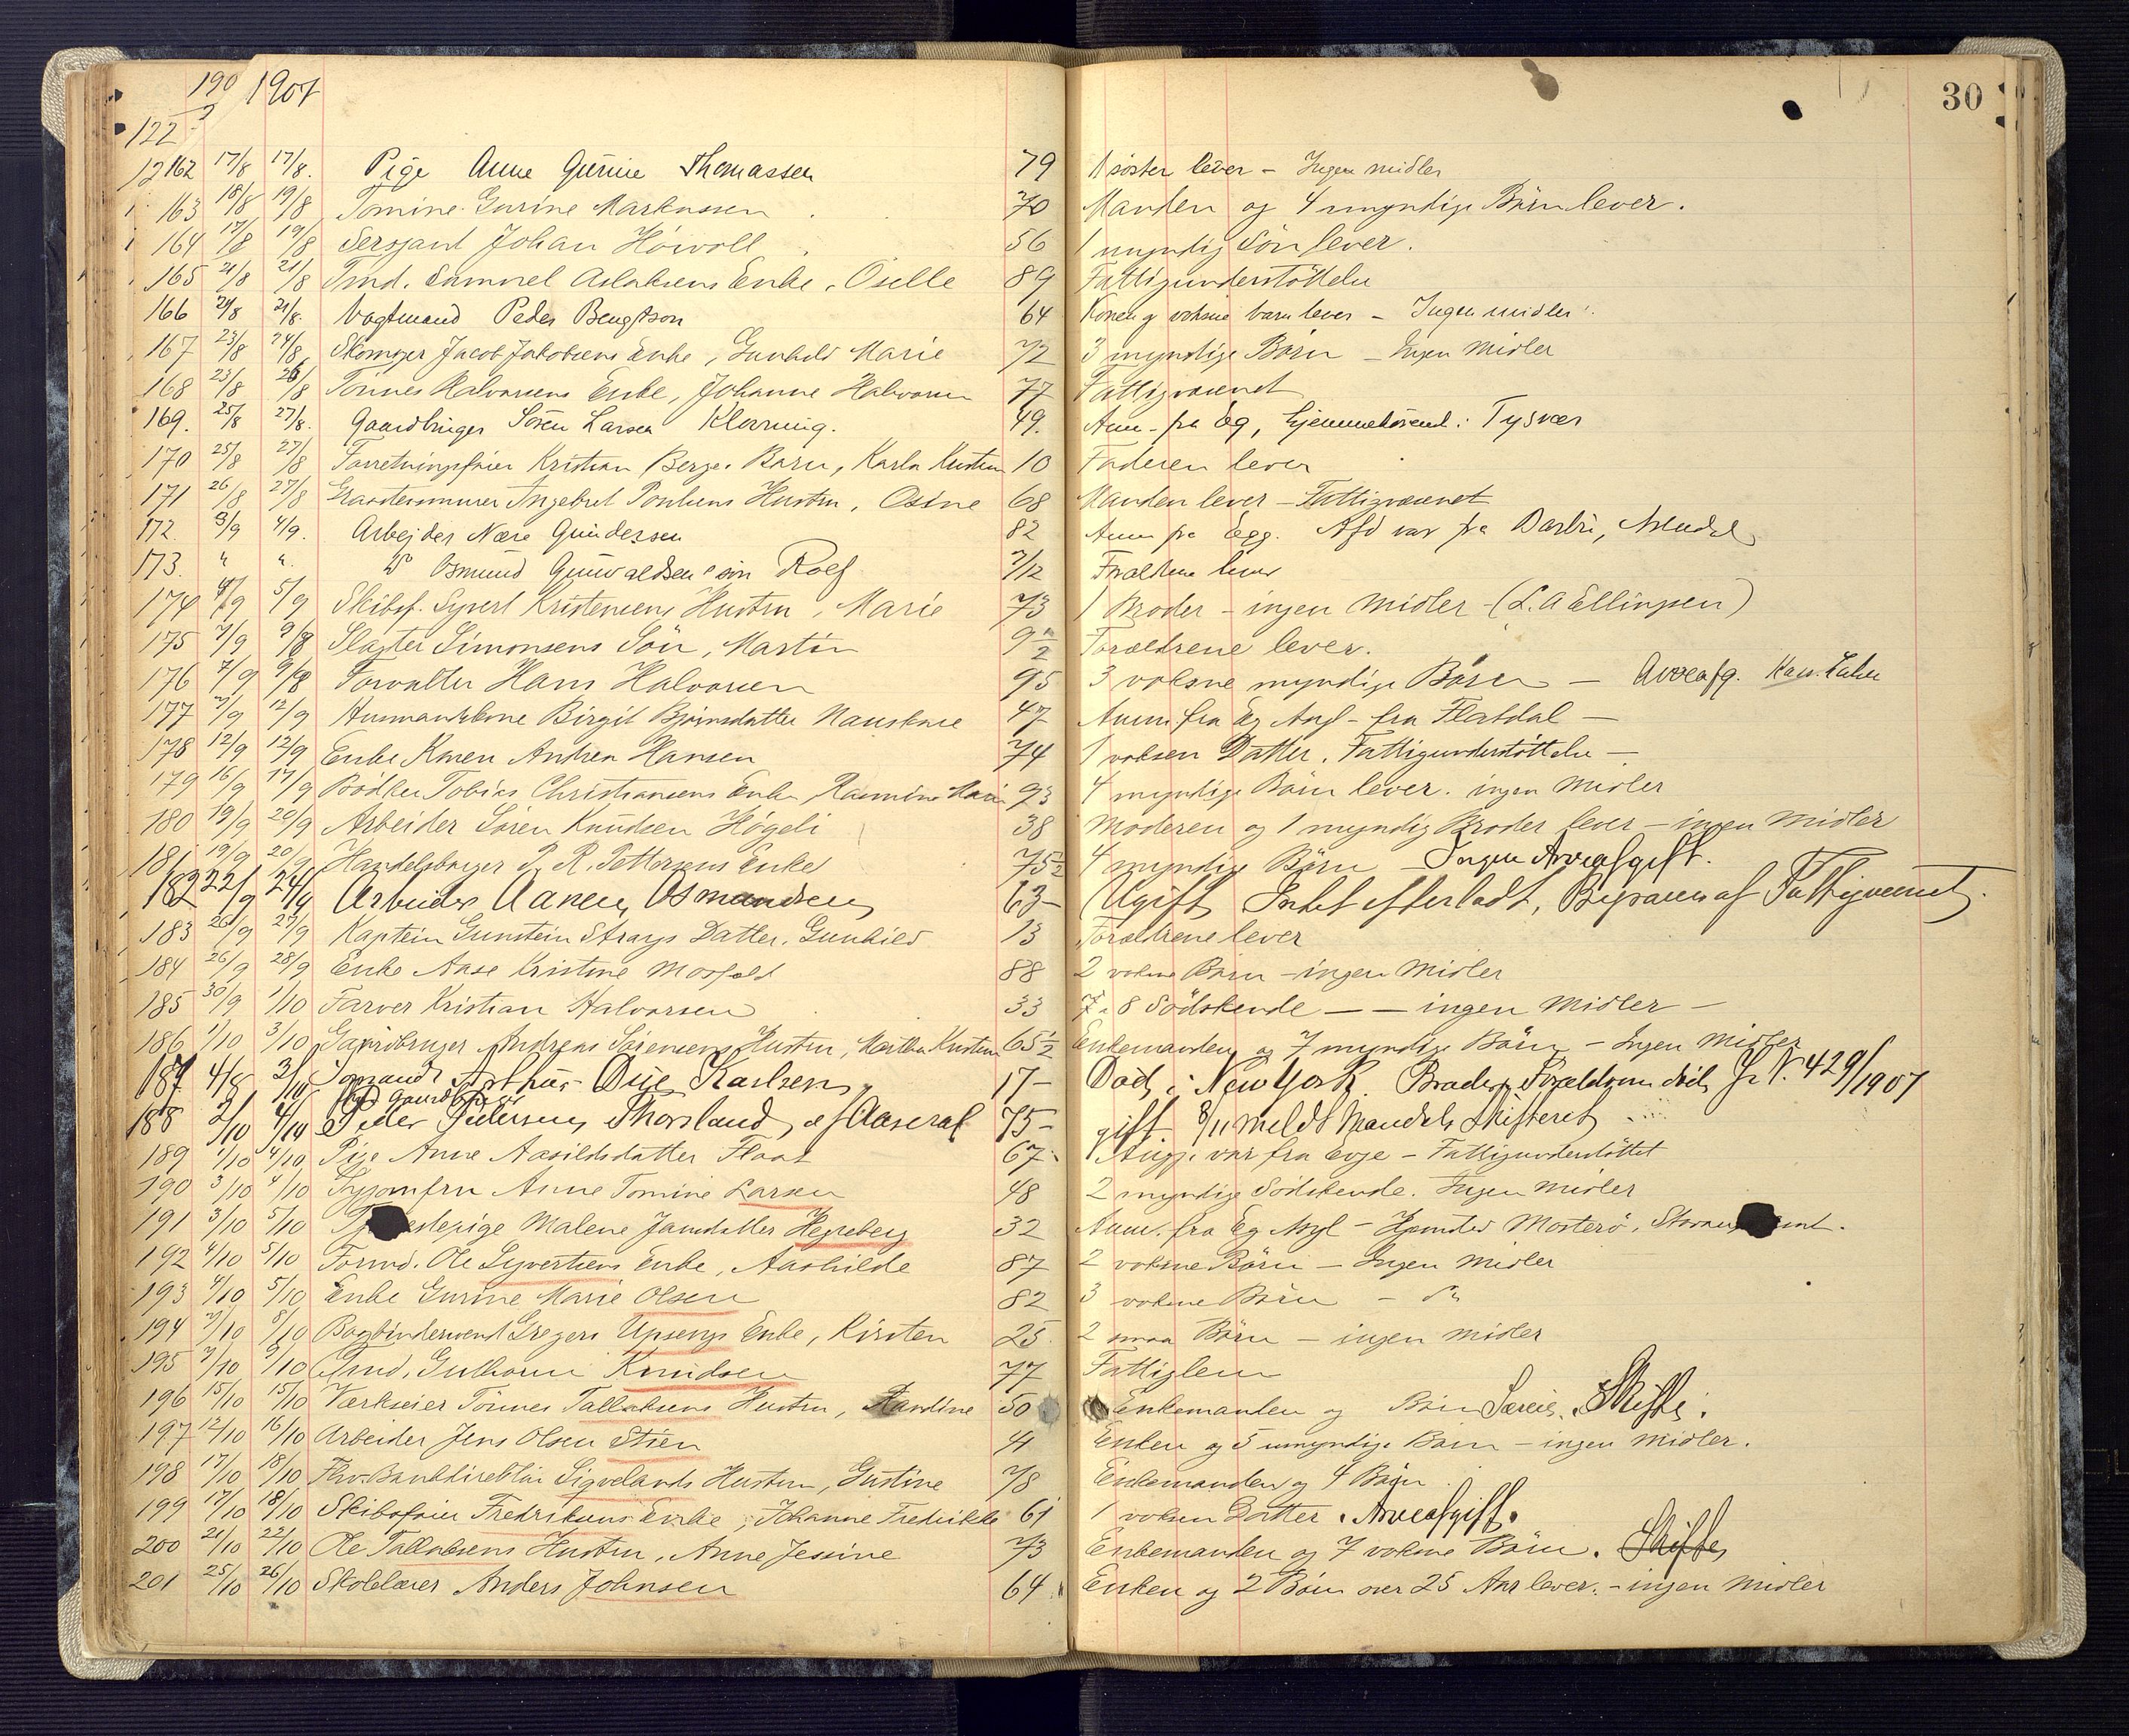 190 1907
30
122
12
162 17/8 17/8. Pige Anne Gurine Thomassen 79 1 søster lever - Ingen midler
163 18/8 19/8 Tomine Gurine Markussen 70 Manden og 4 umyndige Børn lever.
164 17/8 19/8 Sersjant Johan Höivoll 56 1 myndig Sön lever.
165 21/8 21/8 Tmd. Samuel Aslaksens Enke, Oselle 89 Fattigunderstöttelse
166 21/8 21/8. Vagtmand Peder Bengtson 64 Konen og voksne barn lever - Ingen midler.
167 23/8 24/8 Skomager Jacob Jakobsens Enke, Gunhild Marie 72 3 myndige Börn - Ingen Midler
168 23/8 26/8 Tönnes Halvorsens Enke, Johanne Halvorsen 77 Fattigvæsenet
169. 25/8 27/8. Gaardbruger Sören Larsen 49. Anm. fra Eg, hjemmehörende: Tysvær
170 25/8 27/8 Forretningsförer Kristian Berges Barn, Karla Kristine 10 Faderen lever
171 26/8 27/8 Graastensmurer Ingebret Poulsens Hustru, Osine 68 Manden lever - Fattigvæsenet
172. 3/9 4/9. Arbejder Nære Gundersen 82 Anm fra Egg. Afd var fra Barbu, Arendal
173. " ". Do Osmund Gunvaldsens sön Rolf 7/12 Forældrene lever
174 4/9 5/9 Skibsf. Syvert Kristensens Hustru, Marie 73 1 Broder - ingen Midler - (L. A Ellingsen)
175 7/9 9/8 Slagter Simonsens Sön, Martin 9 1/2 Forældrene lever.
176 7/9 9/8 Forvalter Hans Halvorsen 95 3 voksne myndige Börn - Arveafg.
177 9/9 12/9 Husmandskone Birgit Bjørnsdatter Nauskare 47 Anm. fra Eg Asyl - fra Flatdal -
178 12/9 12/9 Enke Karen Andrea Hansen 74 1 voksen Datter. Fattigunderstöttelse -
179 16/9 17/9 Bödker Tobias Christiansens Enke, Rasmine Marie 93 4 myndige Börn lever. ingen Midler
180 19/9 20/9 Arbeider Sören Knudsen Högeli 38 Moderen og 1 myndig Broder lever - ingen Midler
181 19/9 20/9 Handelsborger P. R. Pettersens Enke 75 1/2 4 myndige Börn - Ingen Arveafgift.
182 22/9 24/9 Arbeider Aanen Osmundsen 63 - Ugift, Intet efterladt, Begraven af Fattigvæsenet.
183 26/9 27/9 Kaptein Gunstein Strays Datter, Gunhild 13 Forældrene lever
184 26/9 28/9 Enke Aase Kristine Mosfald 88 2 voksne Börn - ingen Midler
185 30/9 1/10 Farver Kristian Halvorsen 33 7 á 8 Södskende - - ingen Midler -
186 1/10 3/10 Gaardbruger Andreas Sörensens Hustru, Martha Kristine 65 1/2 Enkemanden og 7 myndige Börn - Ingen Midler
187 4/8 3/10 Sömand Arthur Karlsen 17 - Död i New York. Forældrene död, Jr. N. 429/1907
188 2/10 4/10 Gaardbruger Peder Pedersen Thorsland, af Aaseral 75 - gift. 8/11 meldt Mandals Skifteret
189 1/10 4/10 Pige Anne Aasildsdatter Flaat 67 Angj. var fra Evje - Fattigunderstöttet
190 3/10 4/10 Sypomfru Anne Tomine Larsen 48 2 myndige Södskende. Ingen Midler
191 3/10 5/10 Malene Jansdatter Hegreberg 32 Anm. fra Eg Asyl - Hjemsted Mosterö,
192 4/10 5/10 Formd. Ole Syvertsens Enke, Aashilde 87 2 voksne Börn - Ingen Midler
193 4/10 5/10 Enke Gurine Marie Olsen 82 3 voksne Börn - Do
194 7/10 8/10 Bogbindersvend Gregers Upsengs Enke, Kirsten 25. 2 smaa Börn - ingen Midler
195 7/10 9/10 Tmd. Knudsen 77 Fattiglem
196 15/10 15/10 Værkseier Tönnes Tallaksens Hustru, Randine 50 Enkemanden og Börn Særeie. Skifte.
197 12/10 16/10 Arbeider Jens Olsen Stien 41 Enken og 5 umyndige Barn - ingen Midler.
198 17/10 18/10 Fhv. Bankdirektör Sigvelands Hustru, Gustine 78 Enkemanden og 4 Börn.
199 17/10 18/10 Skibsförer Fredriksens Enke, Johanne Fredrikke 61 1 voksen Datter. Arveafgift.
200 21/10 22/10 Ole Tallaksens Hustru, Anne Jessine 73 Enkemanden og 7 voksne Börn. Skifte
201 25/10 26/10 Skolelærer Anders Johnsen 64 Enken og 2 Börn over 25 Aar lever. - ingen Midler